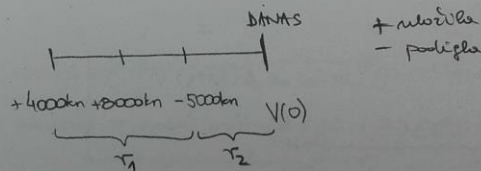 DANAS
+ uložila
- podigla
+4000kn +8000kn -5000kn V(0)
r₁ r₂